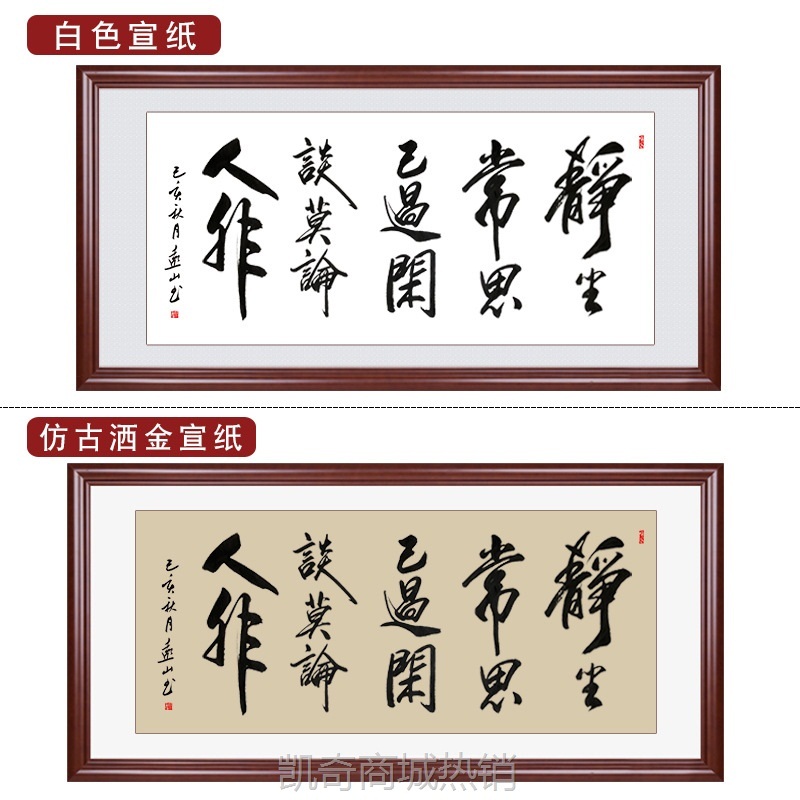 白色宣纸
靜坐
常思
己過閑
談莫論
人非
己亥秋月遠山书
仿古洒金宣纸
靜坐
常思
己過閑
談莫論
人非
己亥秋月遠山书
凯奇商城热销